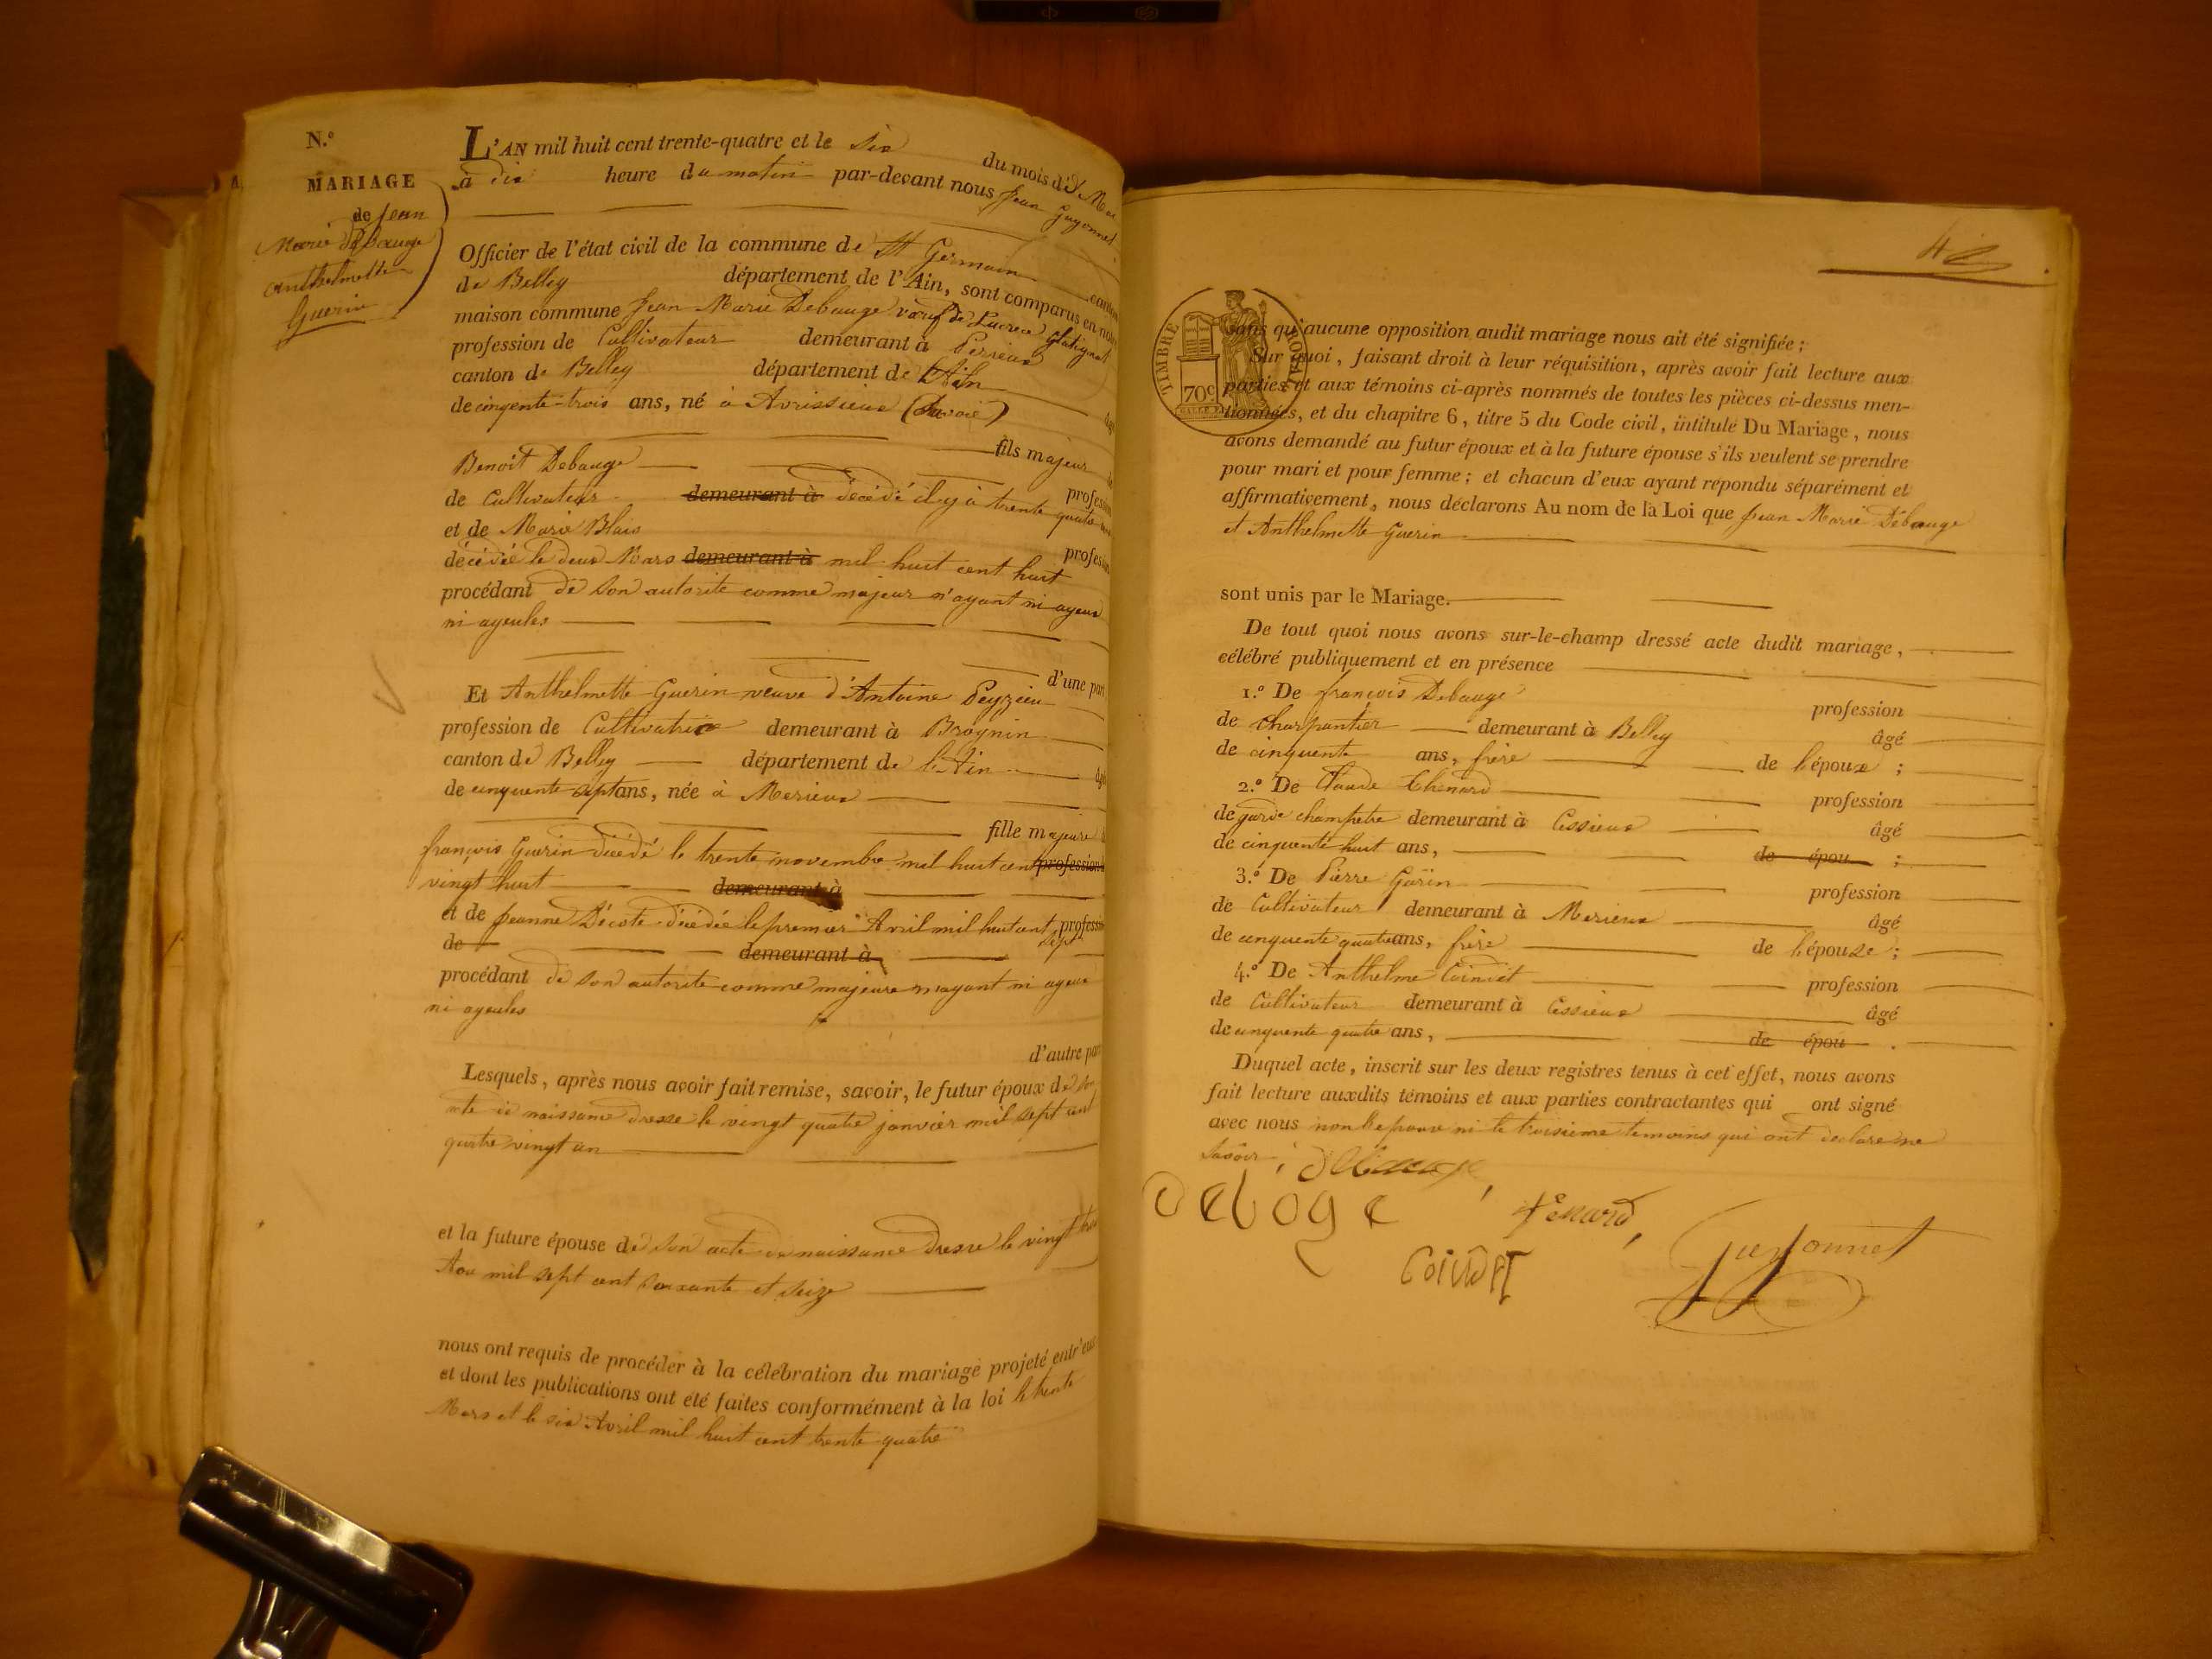 N.°
MARIAGE
de Jean
Marie Debauge
Anthelmette
Guerin
L'AN mil huit cent trente-quatre et le six du mois de Mai
à dix heure du matin par-devant nous Jean Guyonnet
Officier de l'état civil de la commune de St Germain canton
de Belley département de l'Ain, sont comparus en notre
maison commune Jean Marie Debauge veuf de
profession de Cultivateur demeurant à
canton de Belley département de l'Ain
de cinqente-trois ans, né à Avrissieux (Savoie)
fils majeur
Benoit Debauge profession
de Cultivateur demeurant à décédé il y à trente quatre ans
et de Marie Blais profession
décédée le deux Mars demeurant à mil huit cent huit
procédant de son autorité comme majeur n'ayant ni ayeux
ni ayeules
d'une part
Et Anthelmette Guerin veuve d'Antoine Peyzieu
profession de Cultivatrice demeurant à Brognin
canton de Belley département de l'Ain
de cinquente sept ans, née à Merieux
fille majeure
françois Guerin décédé le trente novembre mil huit cent profession
vingt huit demeurant à
et de Jeanne Décote décédée le premier Avril mil huit cent profession
de sept demeurant à
procédant de son autorité comme majeure n'ayant ni ayeux
ni ayeules
d'autre part
Lesquels, après nous avoir fait remise, savoir, le futur époux de son
acte de naissance dressé le vingt quatre janvier mil sept cent
quatre vingt un
et la future épouse de son acte de naissance dressé le vingt
Aou mil sept cent soixante et seize
nous ont requis de procéder à la célébration du mariage projeté entr'eux
et dont les publications ont été faites conformément à la loi le trente
Mars et le six Avril mil huit cent trente quatre
TIMBRE ROYAL
70c
sans qu'aucune opposition audit mariage nous ait été signifiée ;
Sur quoi, faisant droit à leur réquisition, après avoir fait lecture aux
parties et aux témoins ci-après nommés de toutes les pièces ci-dessus men-
tionnées, et du chapitre 6, titre 5 du Code civil, intitulé Du Mariage, nous
avons demandé au futur époux et à la future épouse s'ils veulent se prendre
pour mari et pour femme ; et chacun d'eux ayant répondu séparément et
affirmativement, nous déclarons Au nom de la Loi que Jean Marie Débauge
et Anthelmette Guerin
sont unis par le Mariage.
De tout quoi nous avons sur-le-champ dressé acte dudit mariage,
célébré publiquement et en présence
1.° De françois Debauge profession
de charpantier demeurant à Belley âgé
de cinquente ans, frère de l'époux ;
2.° De Claude Thenard profession
de garde champetre demeurant à Cessieux âgé
de cinquente huit ans, de épou ;
3.° De Pierre Guérin profession
de Cultivateur demeurant à Merieux âgé
de cinquente quatre ans, frère de l'épouse ;
4.° De Anthelme Coindet profession
de Cultivateur demeurant à Cessieux âgé
de cinquente quatre ans, de épou .
Duquel acte, inscrit sur les deux registres tenus à cet effet, nous avons
fait lecture auxdits témoins et aux parties contractantes qui ont signé
avec nous non l'epouse ni le troisieme temoins qui ont declaré ne
savoir
debauge
deboge
tenard
Coindet
Guyonnet